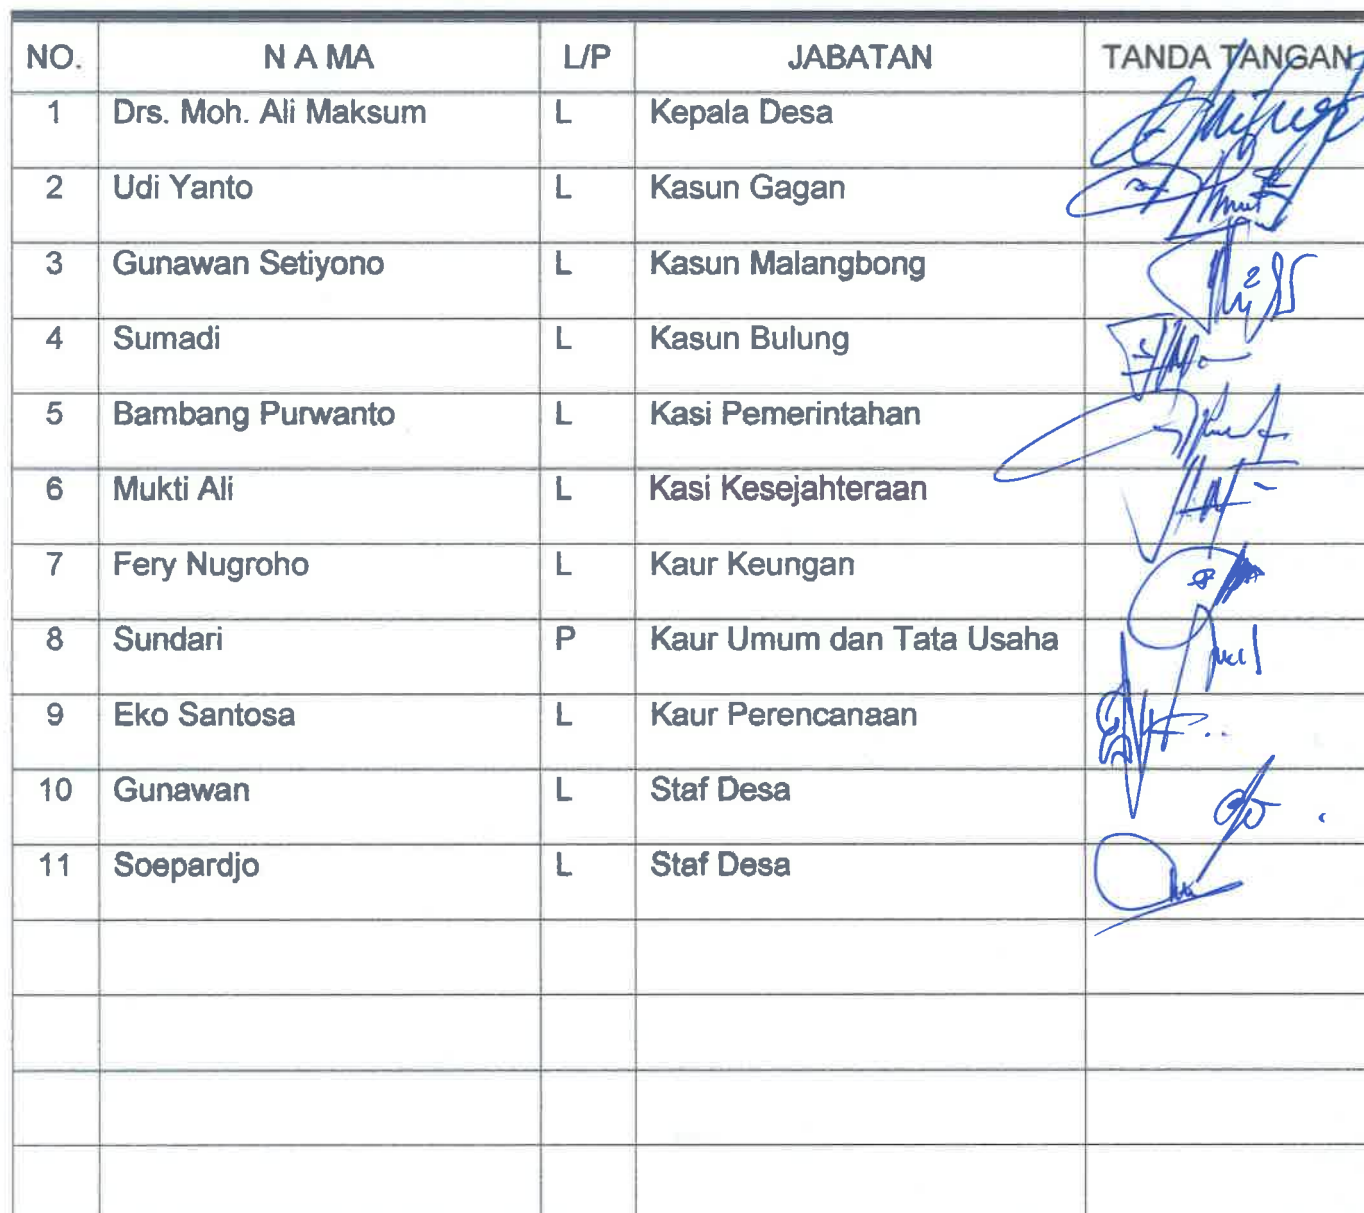 NO. N A MA L/P JABATAN TANDA TANGAN
1 Drs. Moh. Ali Maksum L Kepala Desa
2 Udi Yanto L Kasun Gagan
3 Gunawan Setiyono L Kasun Malangbong
4 Sumadi L Kasun Bulung
5 Bambang Purwanto L Kasi Pemerintahan
6 Mukti Ali L Kasi Kesejahteraan
7 Fery Nugroho L Kaur Keungan
8 Sundari P Kaur Umum dan Tata Usaha
9 Eko Santosa L Kaur Perencanaan
10 Gunawan L Staf Desa
11 Soepardjo L Staf Desa